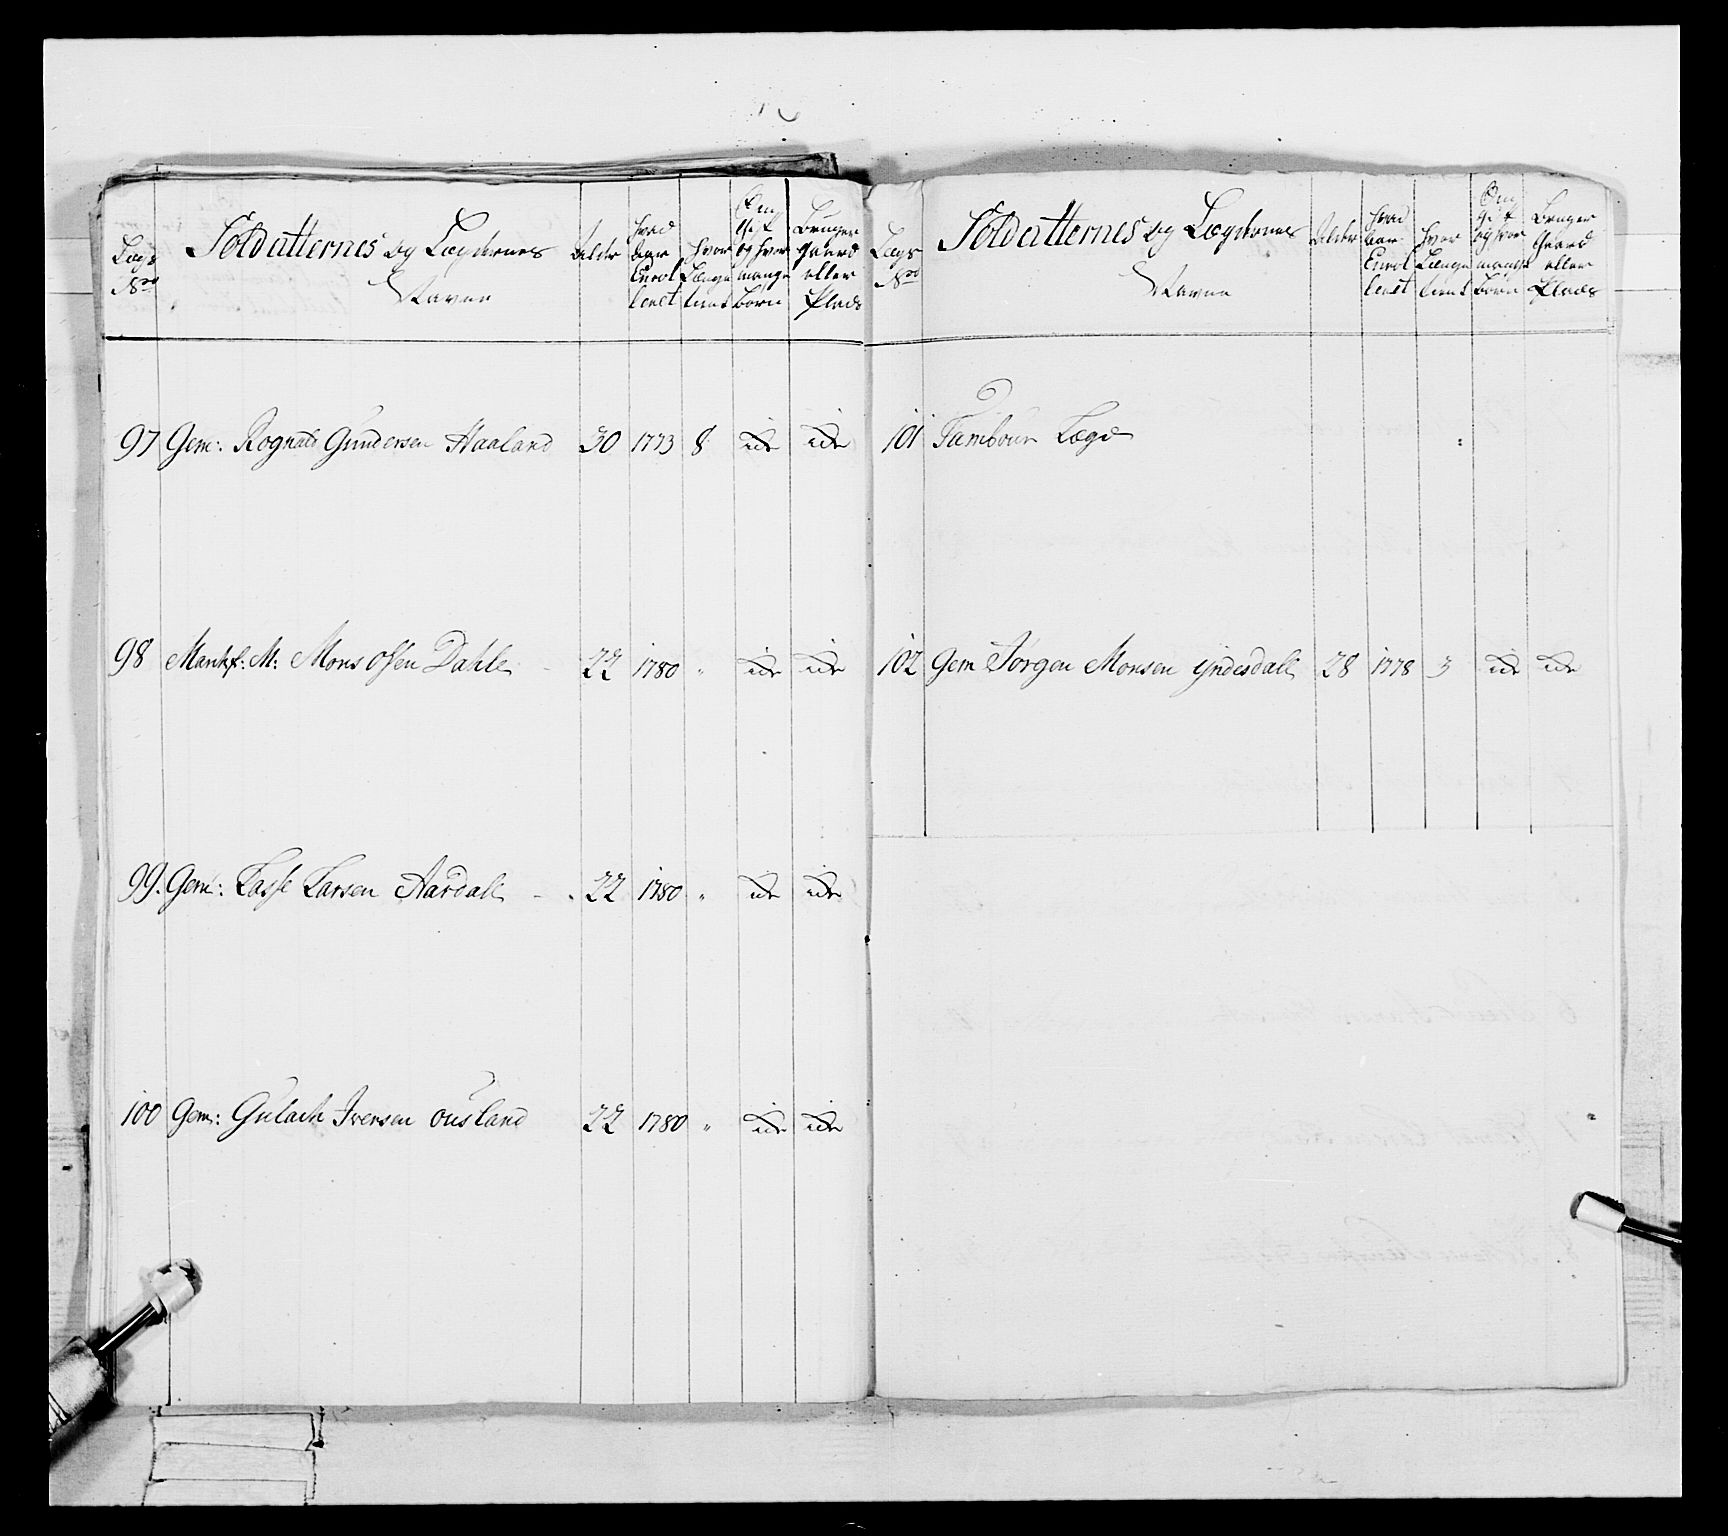 Lægs No
Soldatternes og Lægdernes Navne
Alder
hvad Aar Enrolleret
hvor Længe tient
Om Gift og hvor mange børn
Bruger Gaard eller Plads
97 Gem: Rognald Gundersen Haaland 30 1773 8 id id
98 M: Mons Olsen Dahle 22 1780 " id id
99. Gem: Lasse Larsen Aardall 22 1780 " id id
100 Gem: Gulach Iversen Ousland 22 1780 " id id
Lægs No
Soldatternes og Lægdernes Navne
Alder
hvad Aar Enrolleret
hvor Længe tient
Om Gift og hvor mange børn
Bruger Gaard eller Plads
101 Tambour Lægd
102 Gem Jørgen Monsen Yndesdall 28 1778 3 id id